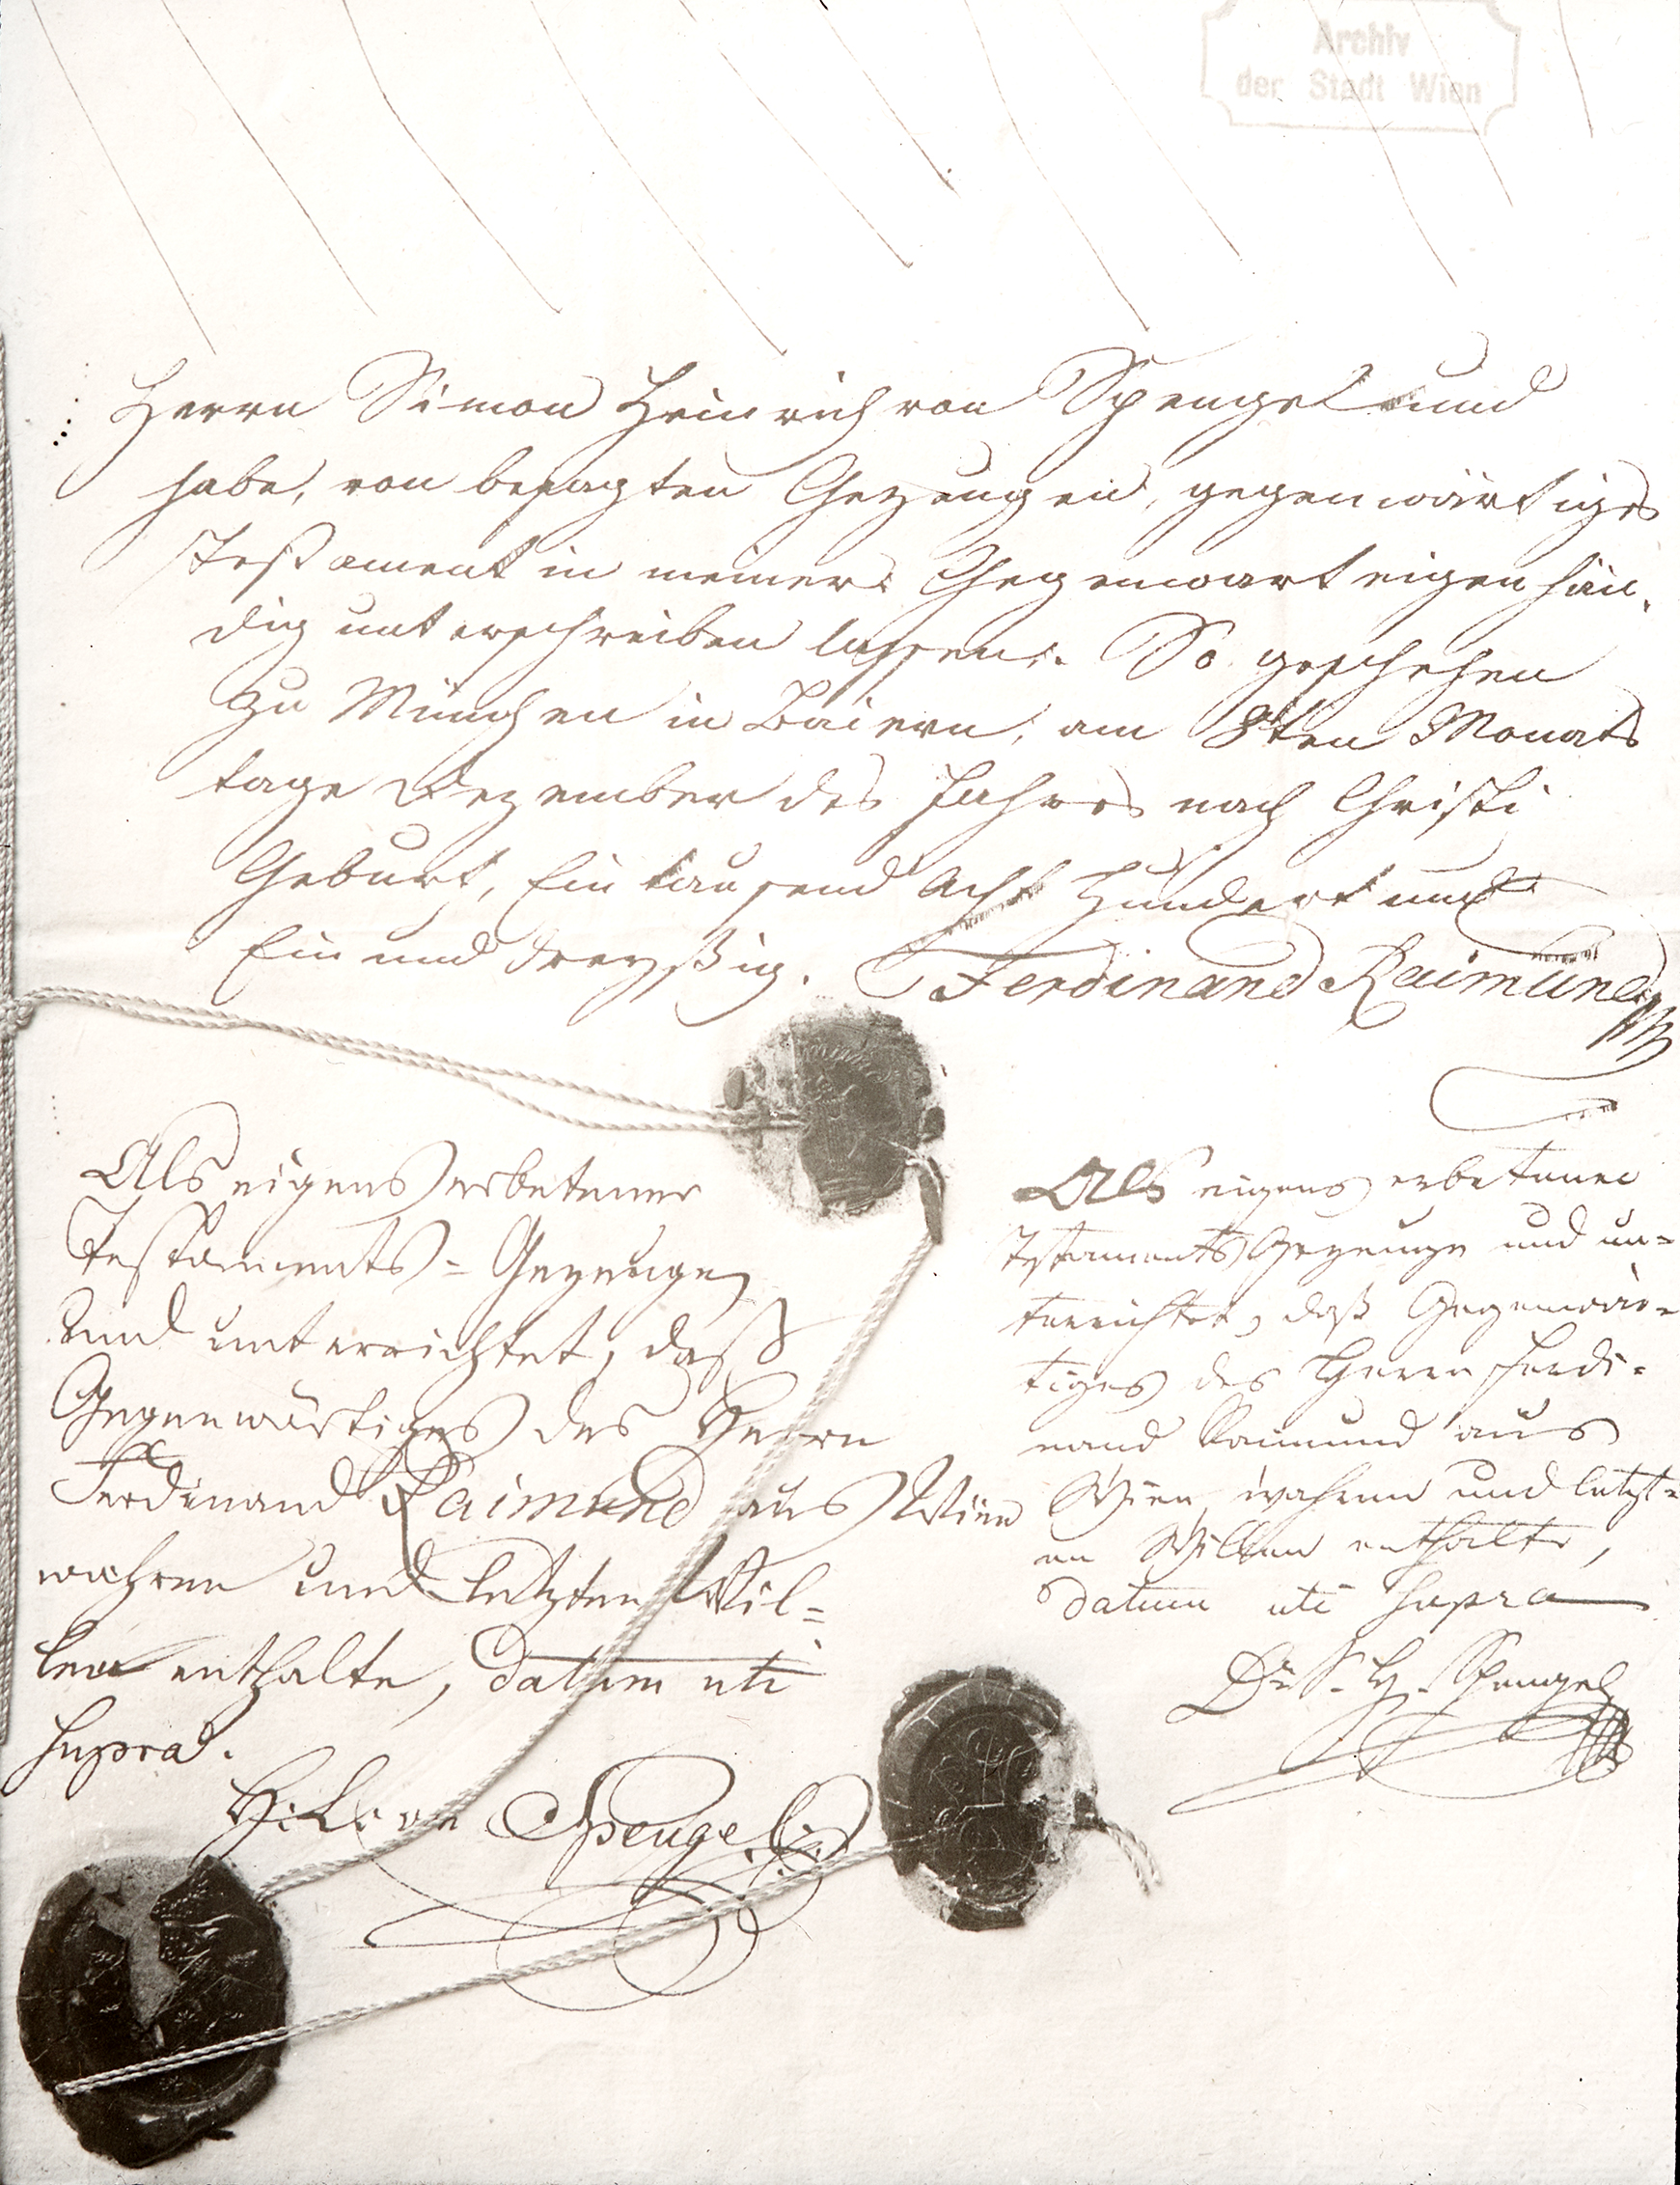 Archiv
der Stadt Wien
Herrn Simon Heinrich von Spengel und
habe, von besagten Gezeugen, gegenwärtiges
Testament in meiner Gegenwart eigenhän,
dig unterschreiben lassen. So geschehen
zu München in Baiern, am 8ten Monats
tage Dezember des Jahres nach Christi
Geburt, Ein tausend Acht Hundert und
Ein und dreyßig. Ferdinand Raimund
Als eigens erbetener
Testaments=Gezeuge
und unterrichtet, daß
Gegenwärtiges des Herrn
Ferdinand Raimund aus Wien
wahren und letzten Wil=
len enthalte, datum uti
supra.
Spengel
Als eigens erbetener
Testaments Gezeuge und un=
terrichtet, daß Gegenwär=
tiges des Herrn Ferdi=
nand Raimund aus
Wien wahren und letzt=
en Willen enthalte,
datum uti supra
Dr S. H. Spengel